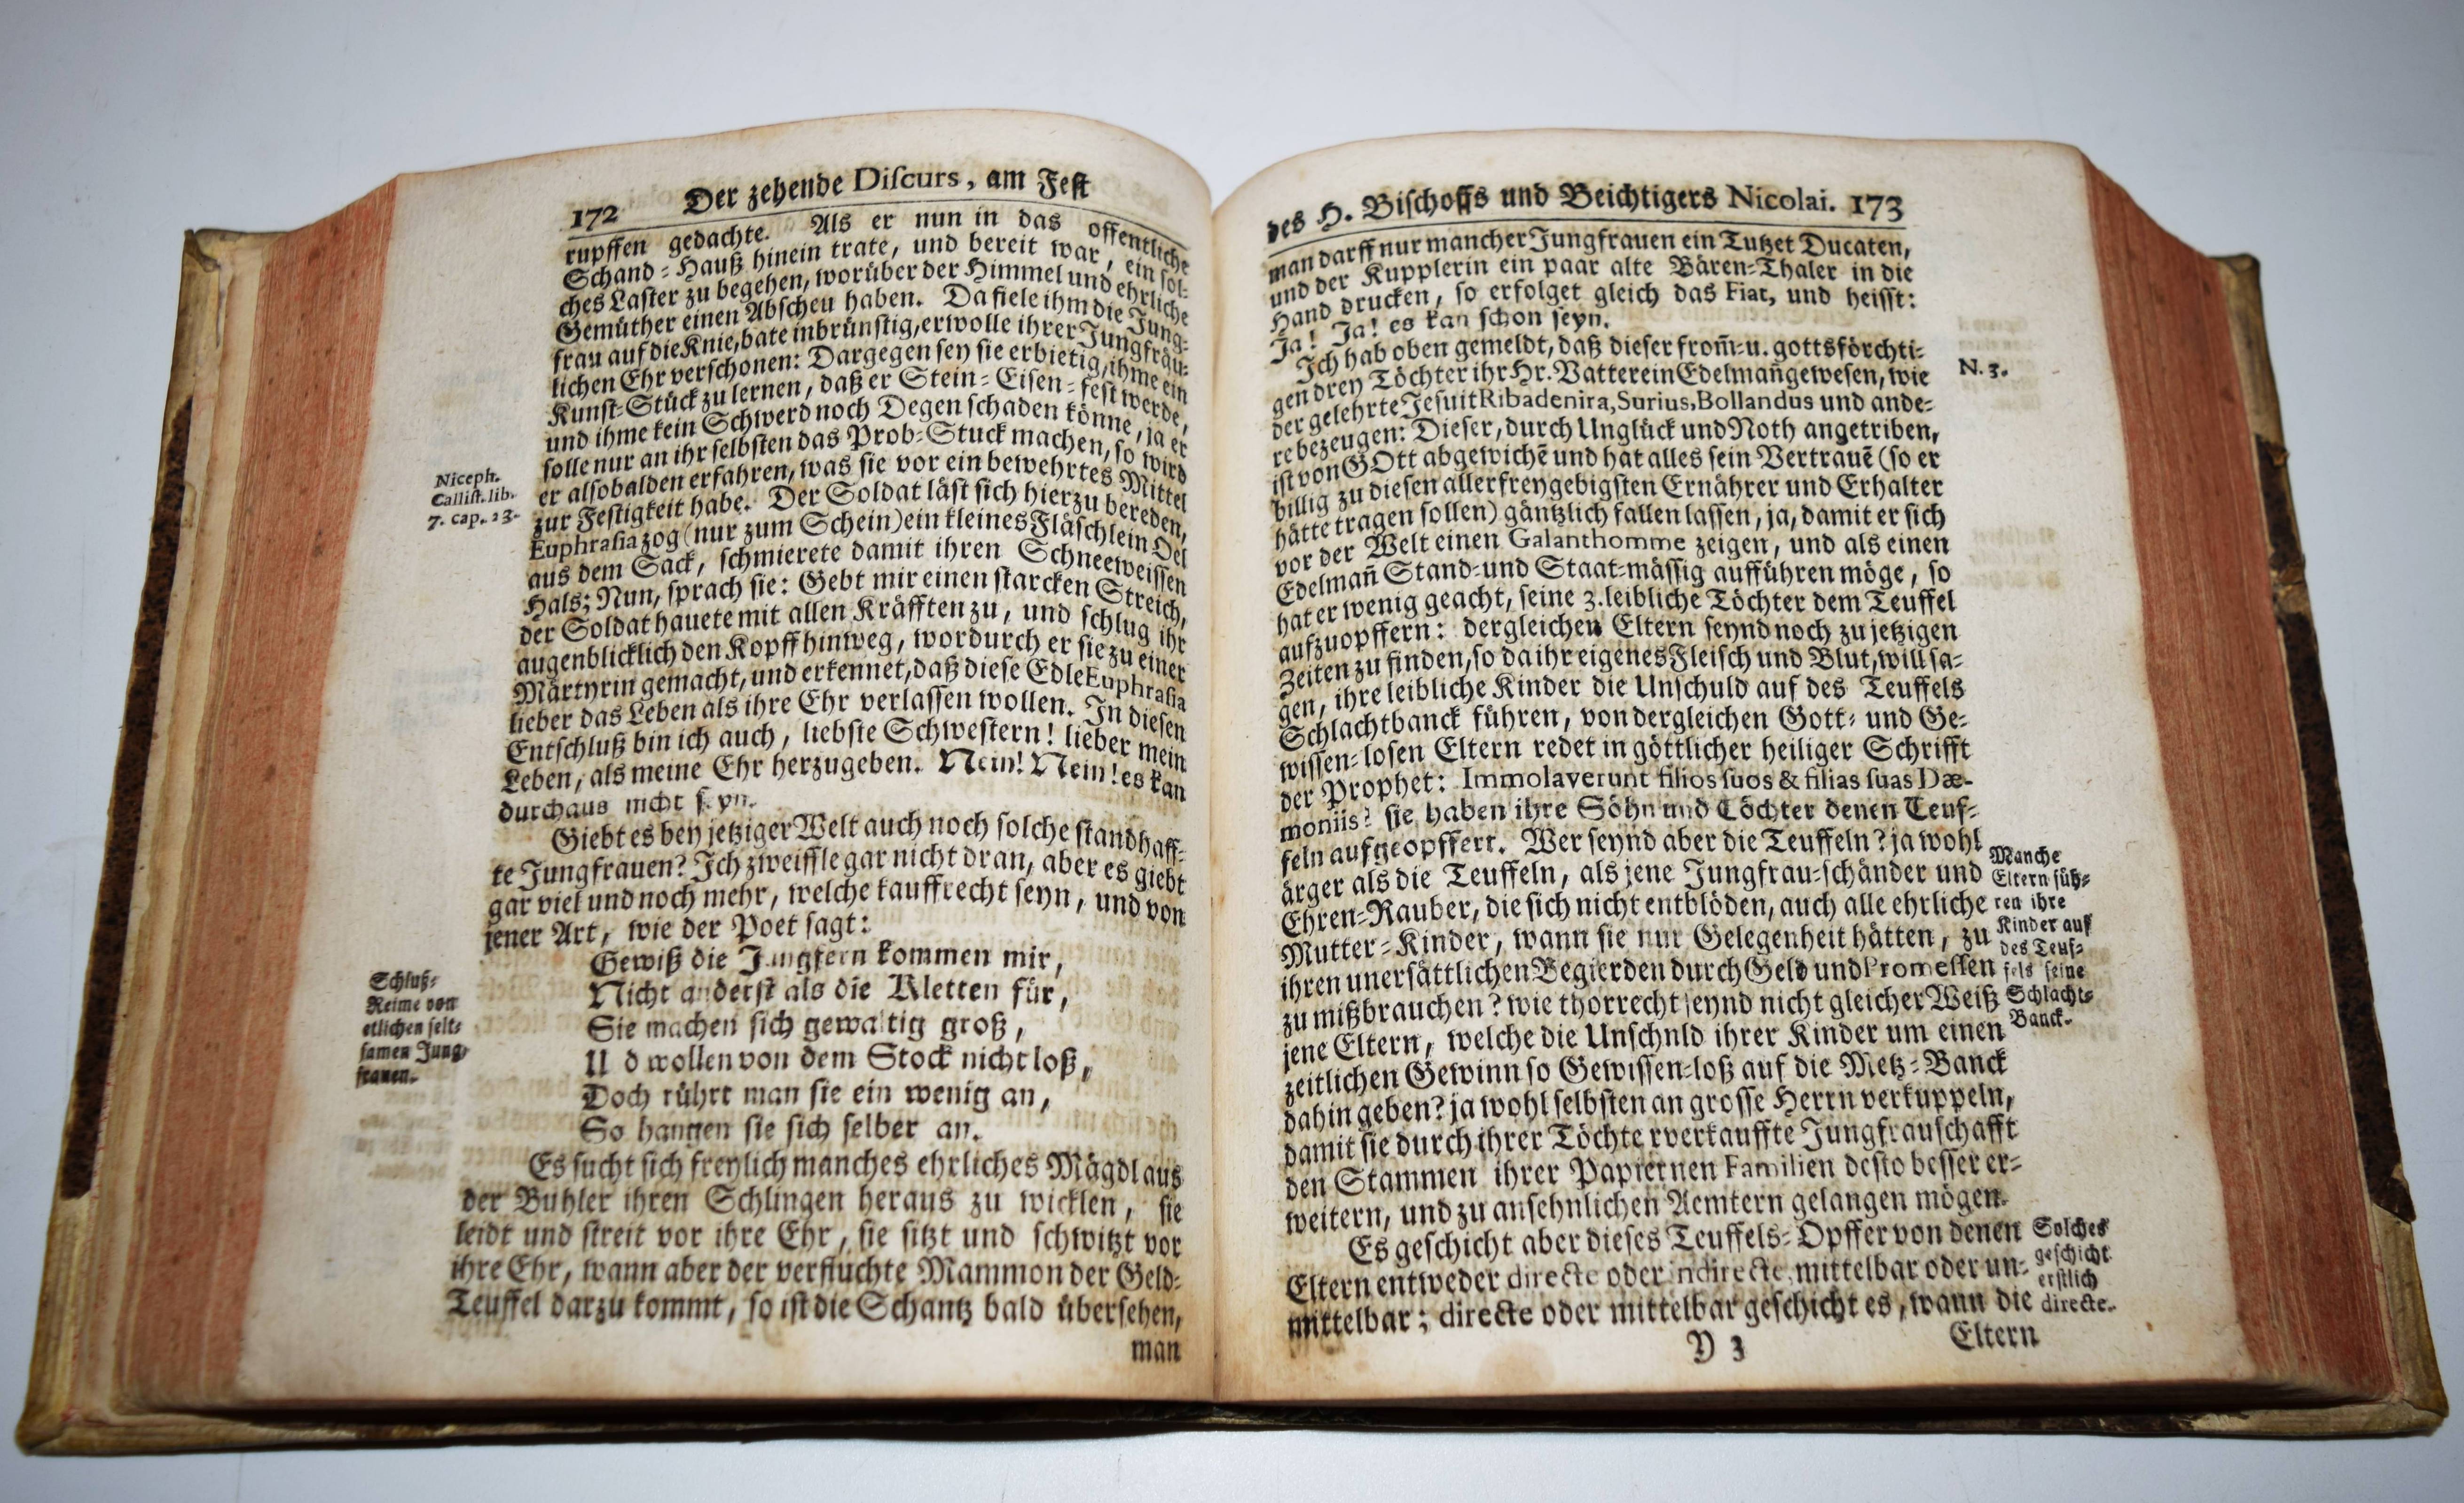 172 Der zehende Discurs, am Fest
rupffen gedachte. Als er nun in das offentliche
Schand-Hauß hinein trate, und bereit war, ein sol-
ches Laster zu begehen, worüber der Himmel und ehrliche
Gemüther einen Abscheu haben. Da fiele ihm die Jung-
frau auf die Knie, bate inbrünstig, er wolle ihrer Jungfräu-
lichen Ehr verschonen: Dargegen sey sie erbietig, ihme ein
Kunst-Stück zu lernen, daß er Stein-Eisen-fest werde,
und ihme kein Schwerd noch Degen schaden könne, ja er
solle nur an ihr selbsten das Prob-Stuck machen, so wird
er alsobalden erfahren, was sie vor ein bewehrtes Mittel
zur Festigkeit habe. Der Soldat läst sich hierzu bereden,
Euphrasia zog (nur zum Schein) ein kleines Fläschlein Oel
aus dem Sack, schmierete damit ihren Schneeweissen
Hals; Nun, sprach sie: Gebt mir einen starcken Streich,
der Soldat hauete mit allen Kräfften zu, und schlug ihr
augenblicklich den Kopff hinweg, wordurch er sie zu einer
Märtyrin gemacht, und erkennet, daß diese Edle Euphrasia
lieber das Leben als ihre Ehr verlassen wollen. In diesen
Entschluß bin ich auch, liebste Schwestern! lieber mein
Leben, als meine Ehr herzugeben. Nein! Nein! es kan
durchaus nicht seyn.
Niceph.
Callist. lib.
7. cap. 23.
Giebt es bey jetziger Welt auch noch solche standhaff-
te Jungfrauen? Ich zweiffle gar nicht dran, aber es giebt
gar viel und noch mehr, welche kauffrecht seyn, und von
jener Art, wie der Poet sagt:
Gewiß die Jungfern kommen mir,
Nicht anderst als die Kletten für,
Sie machen sich gewaltig groß,
Und wollen von dem Stock nicht loß,
Doch rührt man sie ein wenig an,
So hangen sie sich selber an.
Schluß-
Reime von
etlichen selt-
samen Jung-
frauen.
Es sucht sich freylich manches ehrliches Mägdl aus
der Buhler ihren Schlingen heraus zu wicklen, sie
leidt und streit vor ihre Ehr, sie sitzt und schwitzt vor
ihre Ehr, wann aber der verfluchte Mammon der Geld-
Teuffel darzu kommt, so ist die Schantz bald übersehen,
man
des H. Bischoffs und Beichtigers Nicolai. 173
man darff nur mancher Jungfrauen ein Tutzet Ducaten,
und der Kupplerin ein paar alte Bären-Thaler in die
Hand drucken, so erfolget gleich das Fiat, und heisst:
Ja! Ja! es kan schon seyn.
Ich hab oben gemeldt, daß dieser from̃- u. gottsförchti-
gen drey Töchter ihr Hr. Vatter ein Edelman̄ gewesen, wie
der gelehrte Jesuit Ribadenira, Surius, Bollandus und ande-
re bezeugen: Dieser, durch Unglück und Noth angetriben,
ist von GOtt abgewichē und hat alles sein Vertrauē (so er
billig zu diesen allerfreygebigsten Ernährer und Erhalter
hätte tragen sollen) gäntzlich fallen lassen, ja, damit er sich
vor der Welt einen Galanthomme zeigen, und als einen
Edelman̄ Stand- und Staat-mässig aufführen möge, so
hat er wenig geacht, seine 3. leibliche Töchter dem Teuffel
aufzuopffern: dergleichen Eltern seynd noch zu jetzigen
Zeiten zu finden, so da ihr eigenes Fleisch und Blut, will sa-
gen, ihre leibliche Kinder die Unschuld auf des Teuffels
Schlachtbanck führen, von dergleichen Gott- und Ge-
wissen-losen Eltern redet in göttlicher heiliger Schrifft
der Prophet: Immolaverunt filios suos & filias suas Dæ-
moniis: sie haben ihre Söhn und Töchter denen Teuf-
feln aufgeopffert. Wer seynd aber die Teuffeln? ja wohl
ärger als die Teuffeln, als jene Jungfrau-schänder und
Ehren-Rauber, die sich nicht entblöden, auch alle ehrliche
Mutter-Kinder, wann sie nur Gelegenheit hätten, zu
ihren unersättlichen Begierden durch Geld und Promessen
zu mißbrauchen? wie thorrecht seynd nicht gleicher Weiß
jene Eltern, welche die Unschuld ihrer Kinder um einen
zeitlichen Gewinn so Gewissen-loß auf die Metz-Banck
dahin geben? ja wohl selbsten an grosse Herrn verkuppeln,
damit sie durch ihrer Töchter verkauffte Jungfrauschafft
den Stammen ihrer Papiernen Familien desto besser er-
weitern, und zu ansehnlichen Aemtern gelangen mögen.
N. 3.
Manche
Eltern füh-
ren ihre
Kinder auf
des Teuf-
fels seine
Schlacht-
Banck.
Es geschicht aber dieses Teuffels-Opffer von denen
Eltern entweder directe oder indirecte, mittelbar oder un-
mittelbar; directe oder mittelbar geschicht es, wann die
Solches
geschicht
erstlich
directe.
Y 3 Eltern